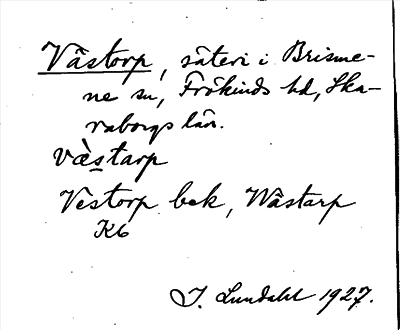 Västorp, säteri i Brisme-
ne sn, Frökinds hd, Ska-
raborgs län.
væ̀starp
Vestorp bek, Wästarp
Kb
I. Lundahl 1927.